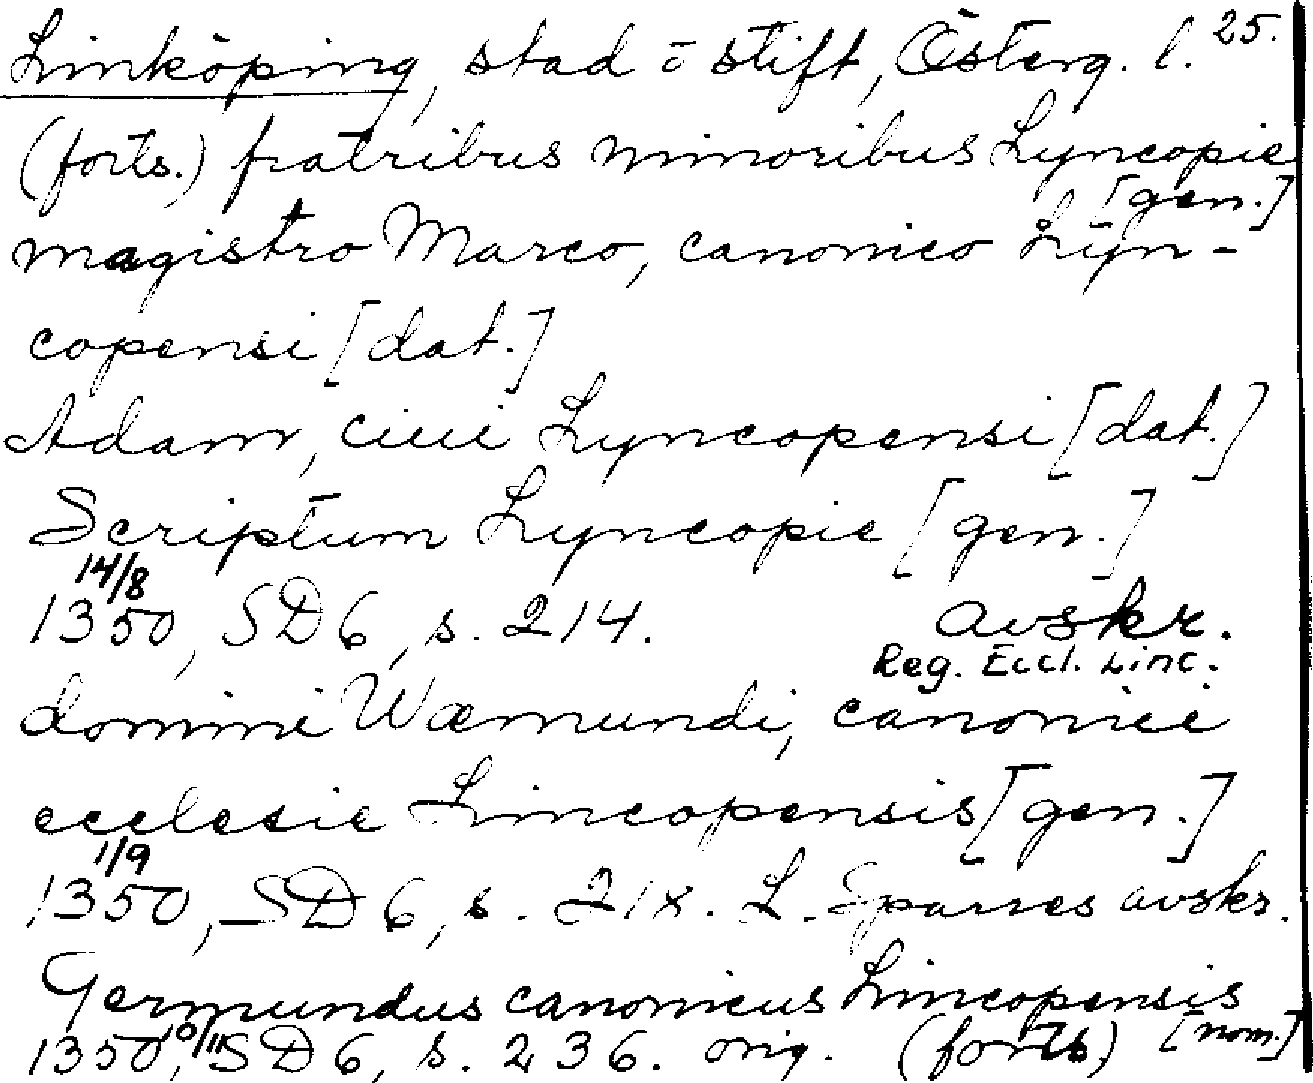 Linköping, stad o stift, Österg. l. 25.
(forts.) fratribus minoribus Lyncopie
[gen.]
magistro Marco, canonico Lyn-
copensi [dat.]
Adam, ciui Lyncopensi [dat.]
Scriptum Lyncopie [gen.]
14/8
1350, SD 6, s. 214. avskr.
Reg. Eccl. Linc.
domini Wæmundi, canonici
ecclesie Lincopensis [gen.]
1/9
1350, SD 6, s. 218. L. Sparres avskr.
Germundus canonicus Lincopensis
1350 10/11, SD 6, s. 236. orig. (forts) [nom.]